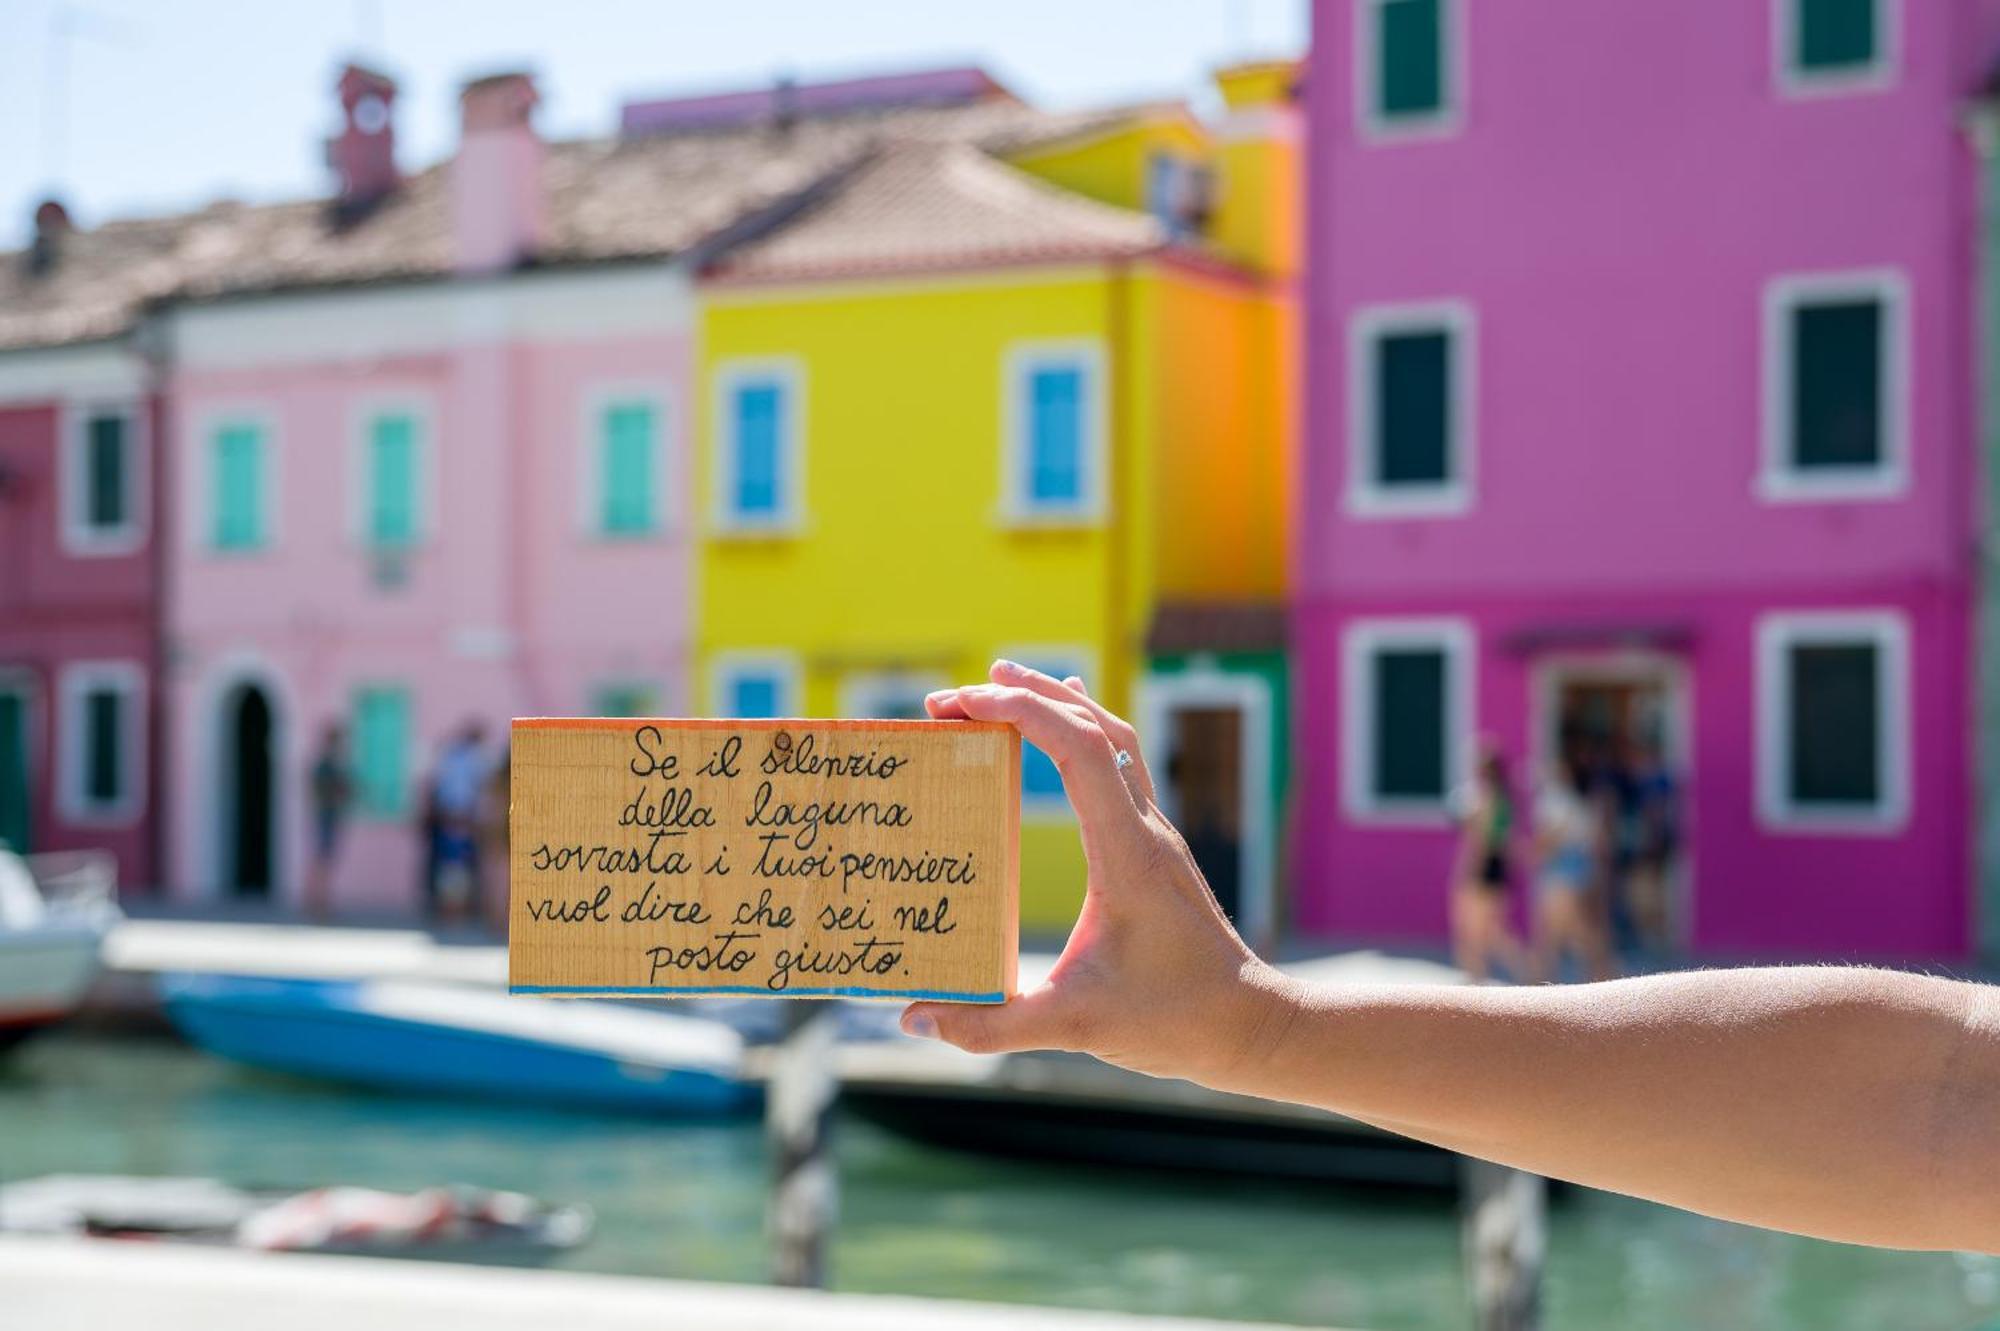 Se il silenzio
della laguna
sovrasta i tuoi pensieri
vuol dire che sei nel
posto giusto.